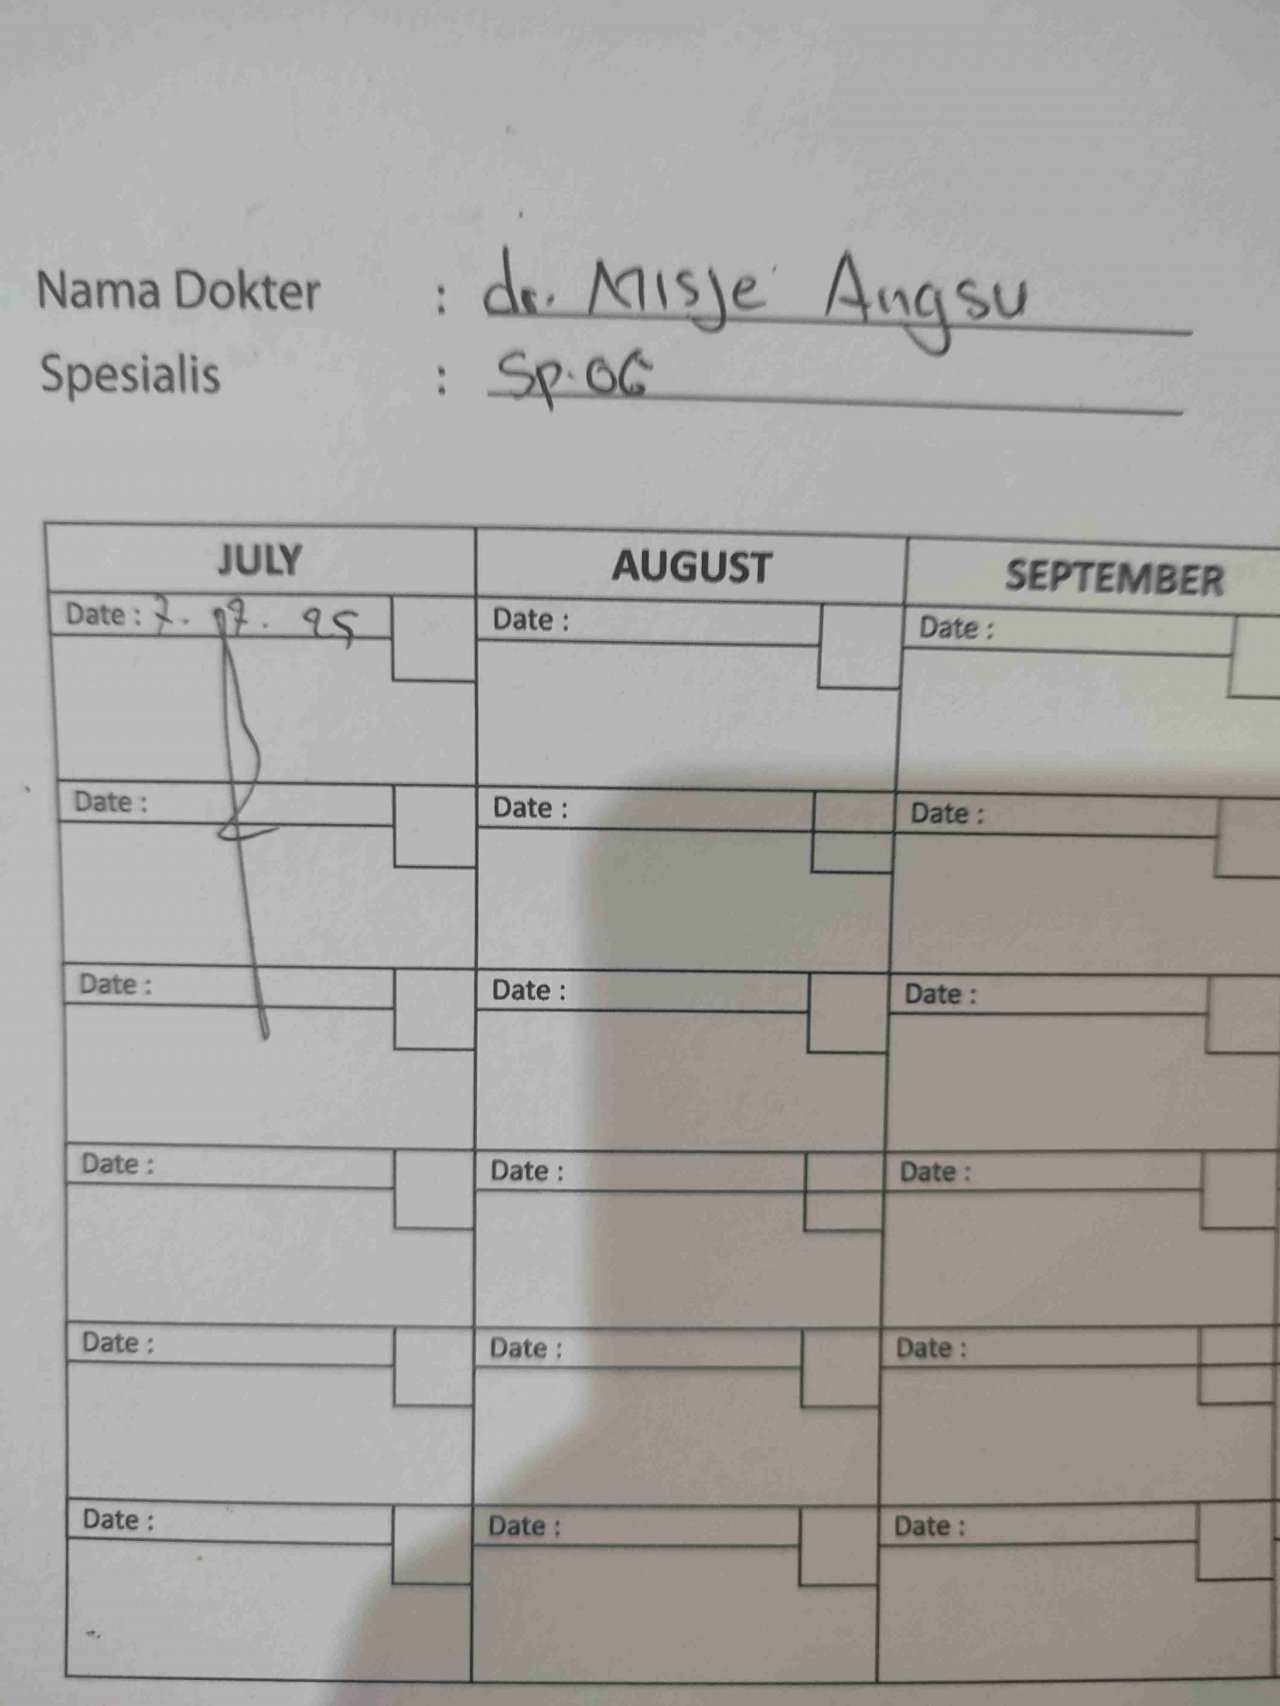 Nama Dokter : dr. Misje Angsu
Spesialis : Sp.OG
JULY AUGUST SEPTEMBER
Date : 7. 07. 25 Date : Date :
Date : Date : Date :
Date : Date : Date :
Date : Date : Date :
Date : Date : Date :
Date : Date : Date :